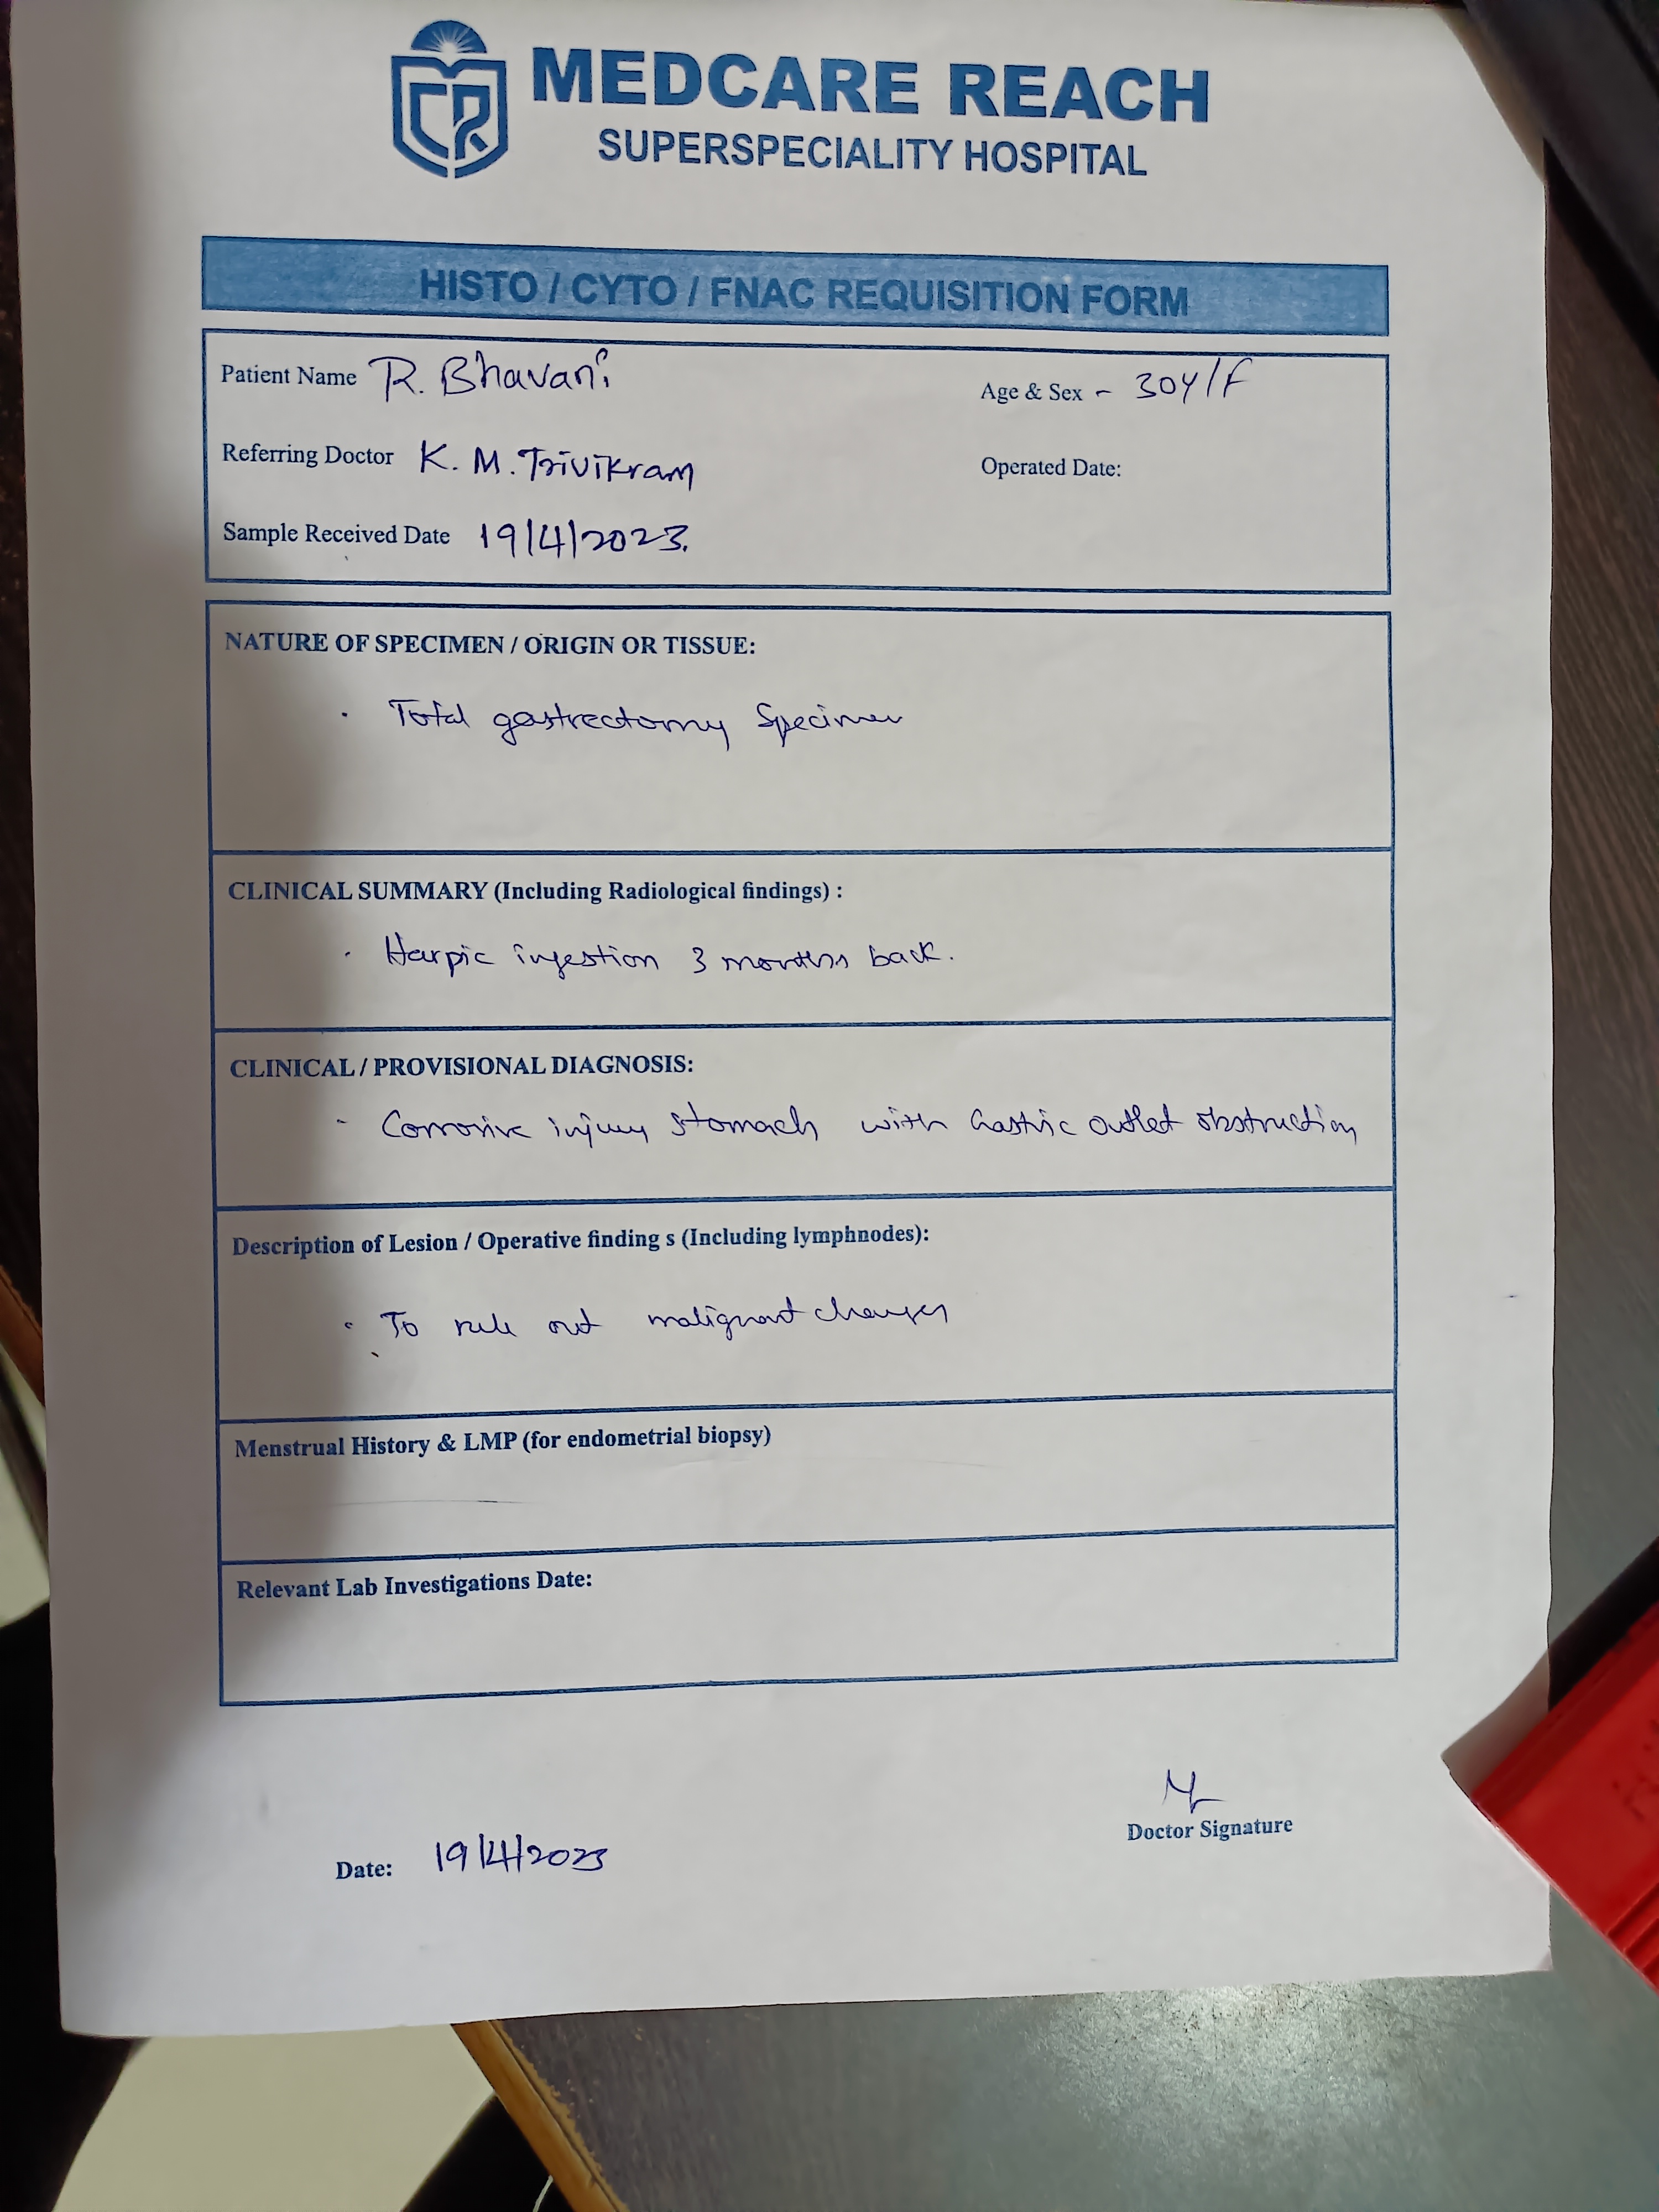 MEDCARE REACH
SUPERSPECIALITY HOSPITAL
HISTO / CYTO / FNAC REQUISITION FORM
Patient Name R. Bhavani
Age & Sex - 30Y/F
Referring Doctor K. M. Trivikram
Operated Date:
Sample Received Date 19/4/2023.
NATURE OF SPECIMEN / ORIGIN OR TISSUE:
Total gastrectomy Specimen
CLINICAL SUMMARY (Including Radiological findings) :
Harpic ingestion 3 months back.
CLINICAL / PROVISIONAL DIAGNOSIS:
- Corrosive injury stomach with Gastric outlet obstruction
Description of Lesion / Operative finding s (Including lymphnodes):
To rule out malignant changes
Menstrual History & LMP (for endometrial biopsy)
Relevant Lab Investigations Date:
Doctor Signature
Date: 19/4/2023